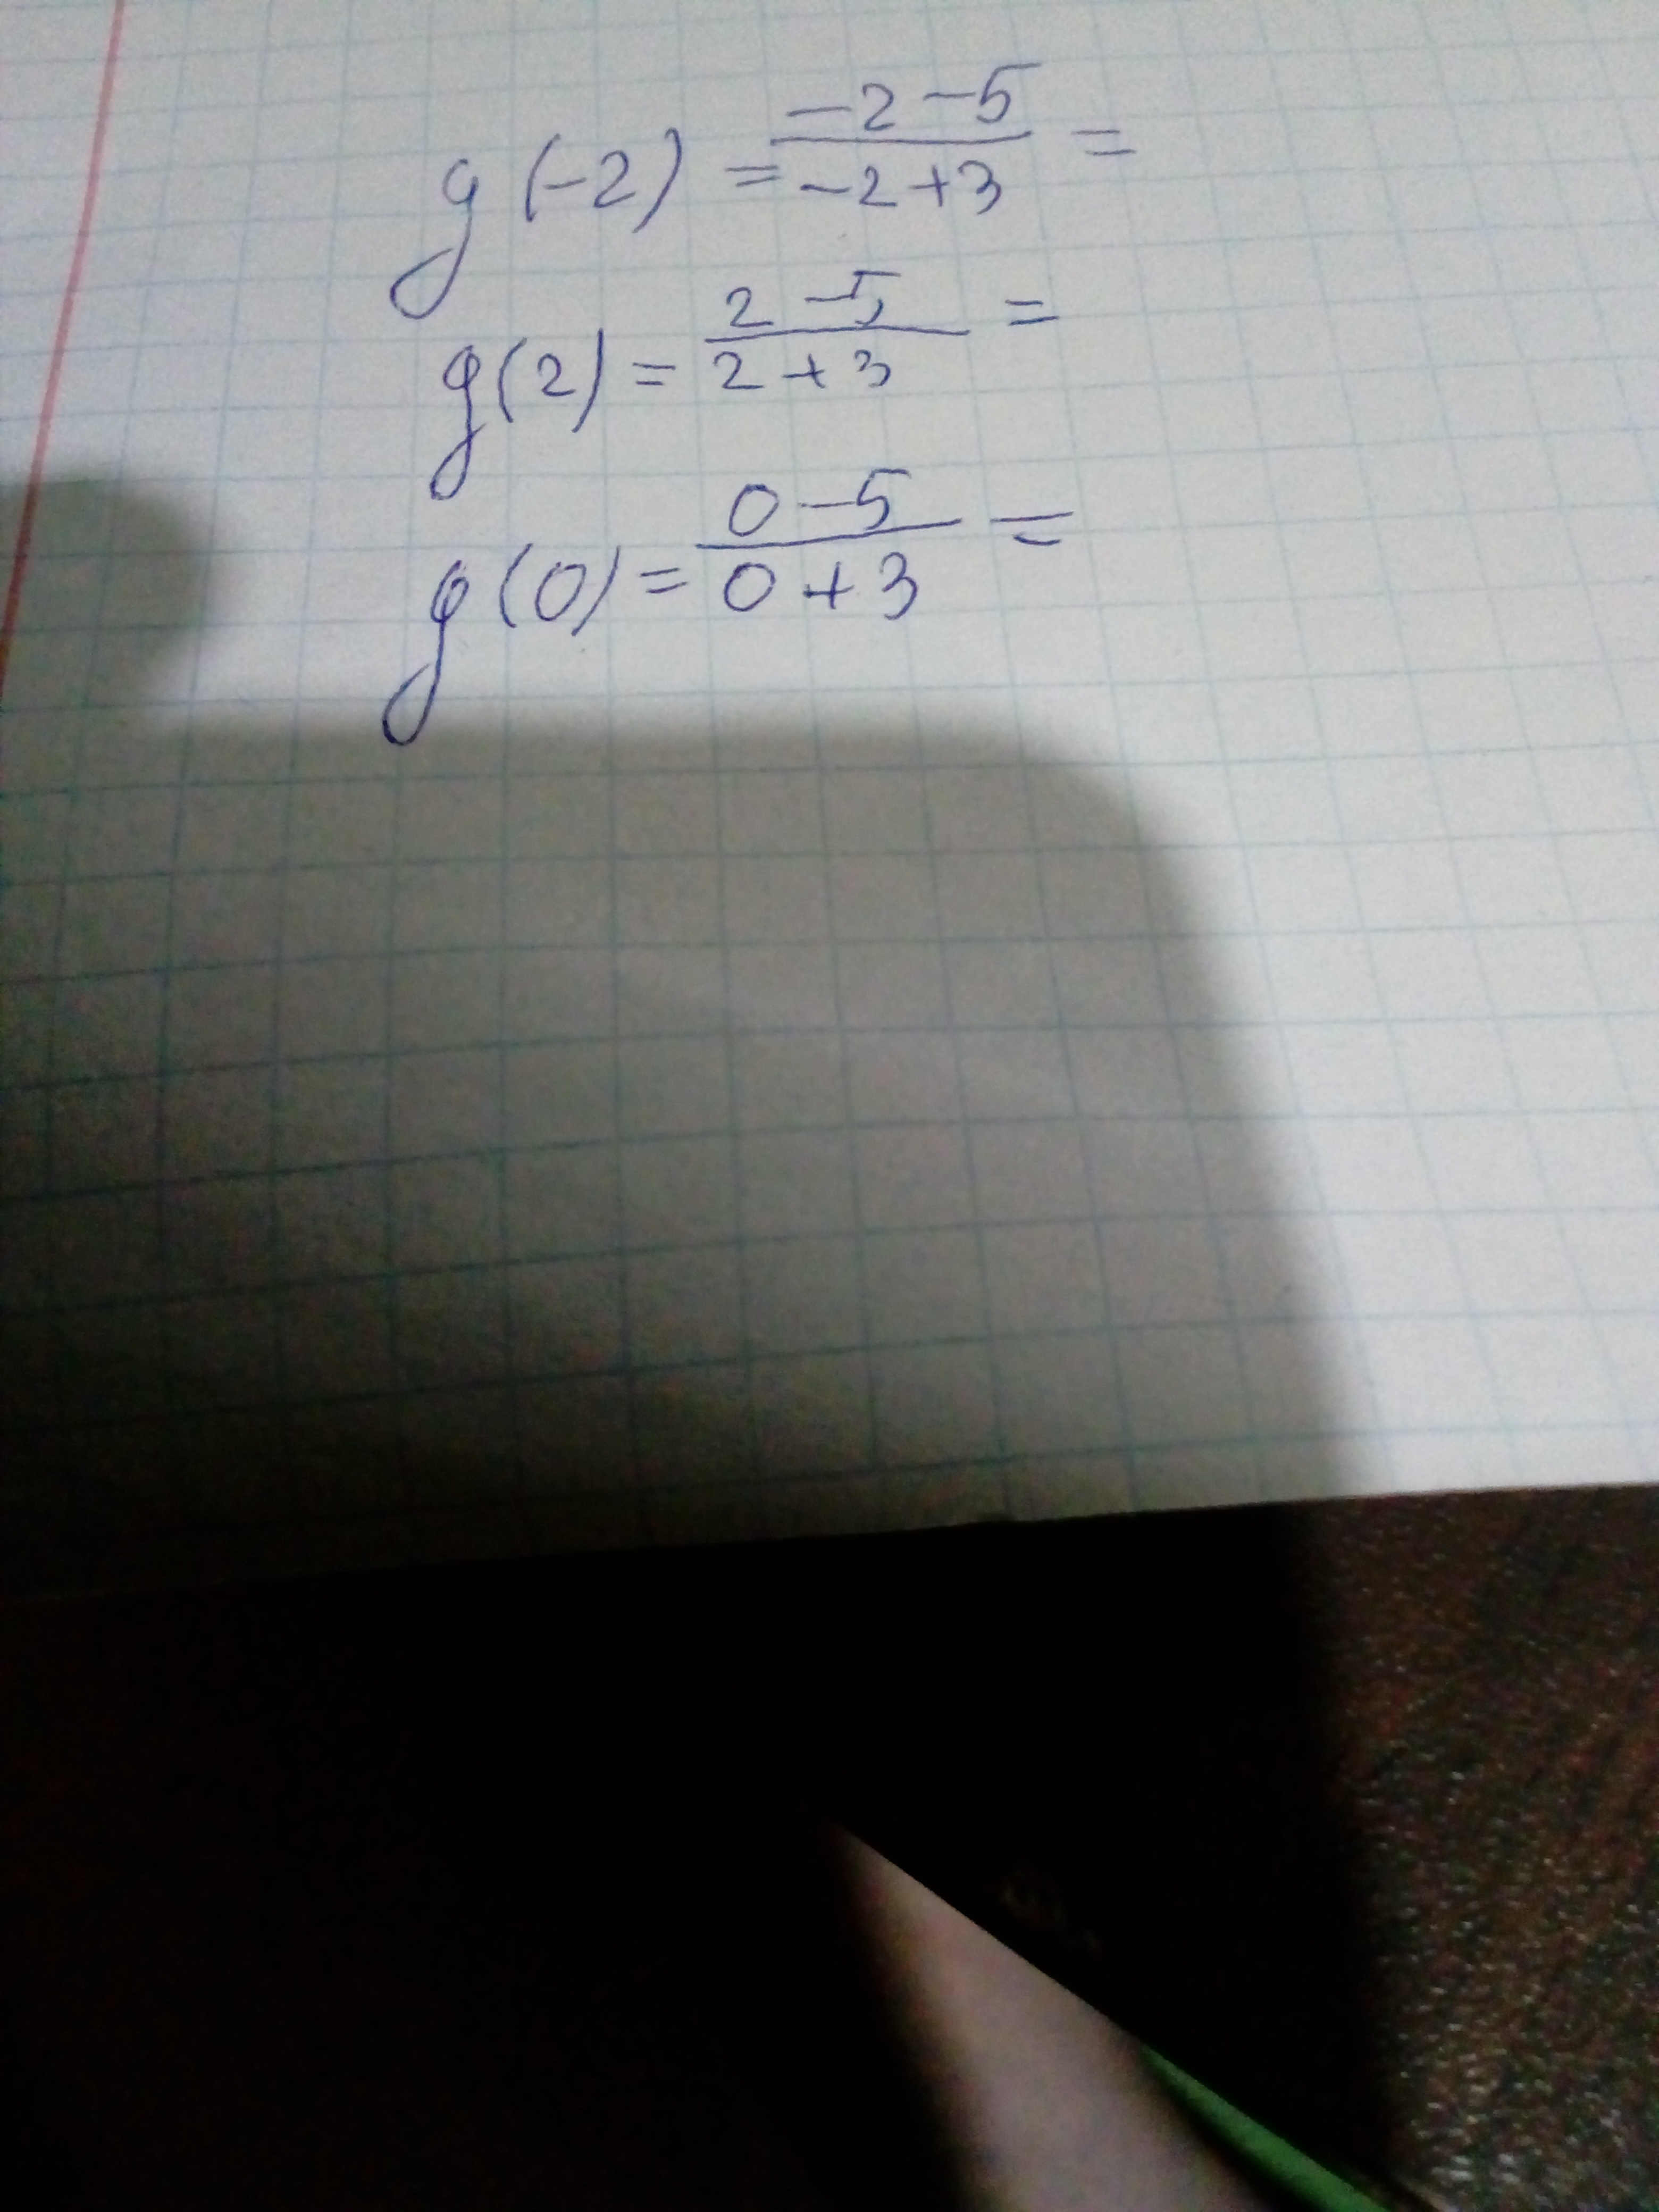 g(-2) = \frac{-2-5}{-2+3} =
g(2) = \frac{2-5}{2+3} =
g(0) = \frac{0-5}{0+3} =